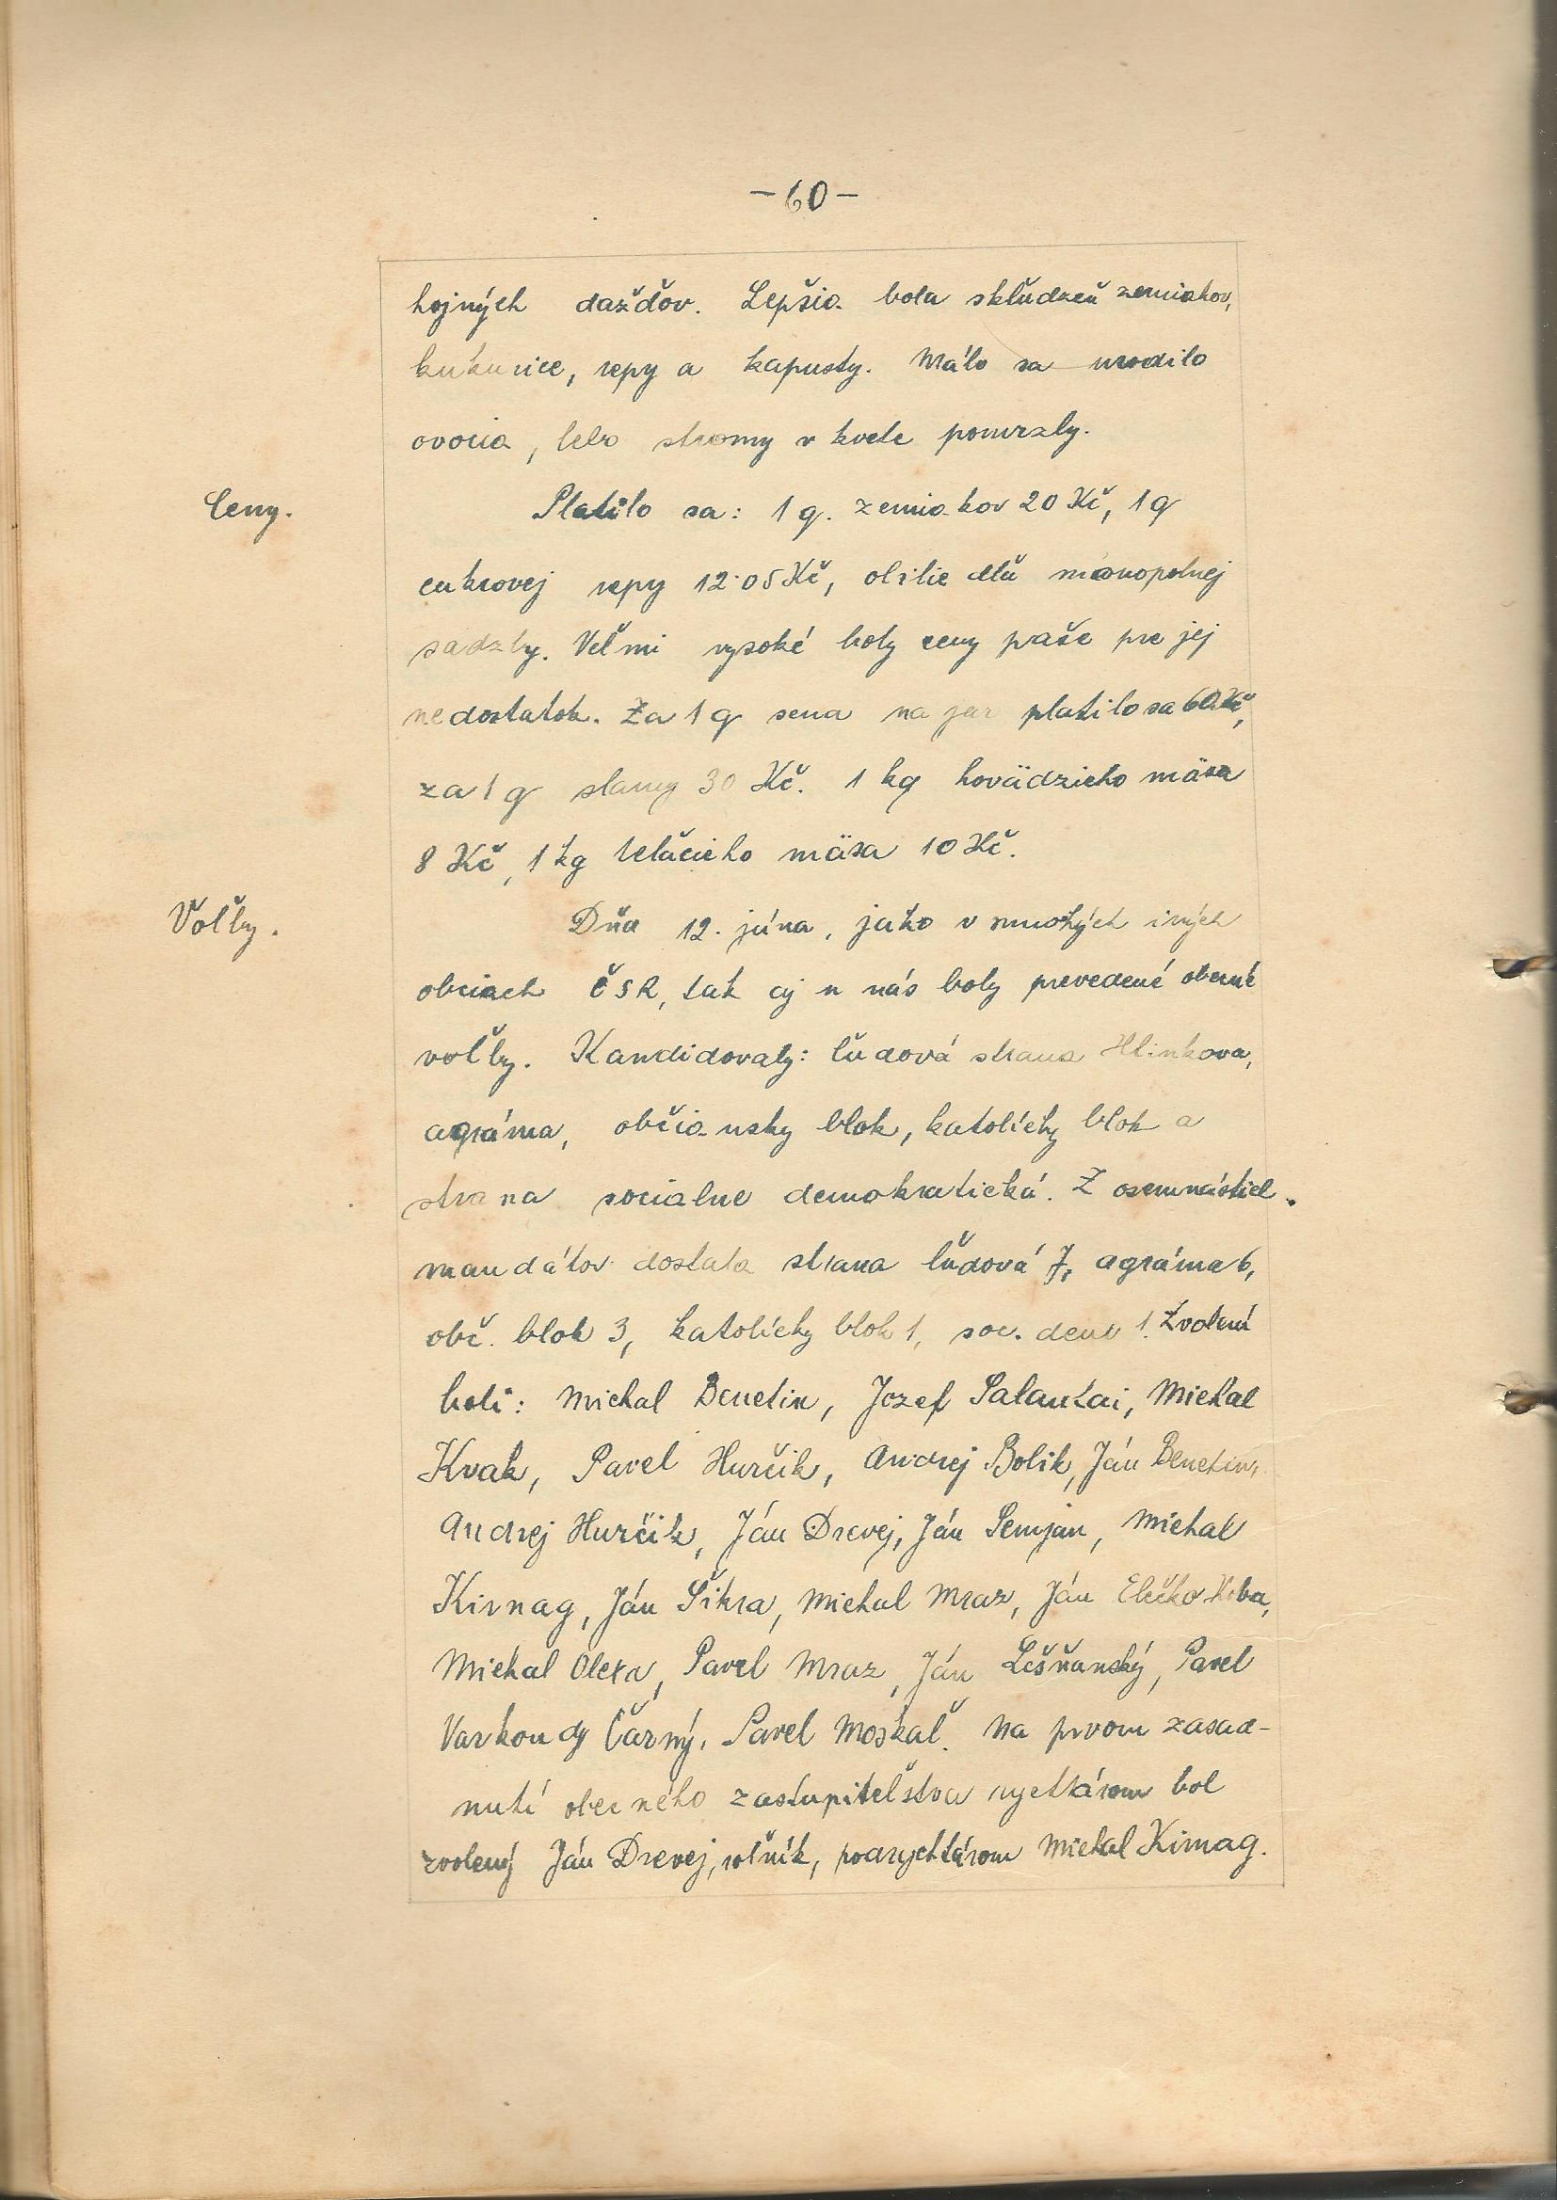 -60-
hojných dažďov. Lepšia bola skľudzeň zemiakov,
kukurice, repy a kapusty. Málo sa urodilo
ovocia, lebo stromy v kvete pomrzly.
Ceny.
Platilo sa: 1 q. zemiakov 20 Kč, 1 q
cukrovej repy 12·05 Kč, obilie dľa monopolnej
sadzby. Veľmi vysoké boly ceny paše pre jej
nedostatok. Za 1 q sena na jar platilo sa 60 Kč,
za 1 q slamy 30 Kč. 1 kg hovädzieho mäsa
8 Kč, 1 kg teľacieho mäsa 10 Kč.
Voľby.
Dňa 12. júna, jako v mnohých iných
obciach ČSR, tak aj u nás boly prevedené obecné
voľby. Kandidovaly: ľudová strana Hlinkova,
agrárna, občiansky blok, katolícky blok a
strana socialne demokratická. Z osemnástich
mandátov dostala strana ľudová 7, agrárna 6,
obč. blok 3, katolícky blok 1, soc. dem 1. Zvolení
boli: Michal Benetin, Jozef Salantai, Michal
Kvak, Pavel Hurčik, Andrej Bolik, Ján Benetin,
Andrej Hurčik, Ján Drevej, Ján Semjan, Michal
Kirnag, Ján Šikra, Michal Mraz, Ján Elečko
Michal Olexa, Pavel Mraz, Ján Lešňanský, Pavel
Varkondy Čarný, Pavel Moskaľ. Na prvom zasad-
nutí obecného zastupiteľstva rychtárom bol
zvolený Ján Drevej, roľník, podrychtárom Michal Kirnag.